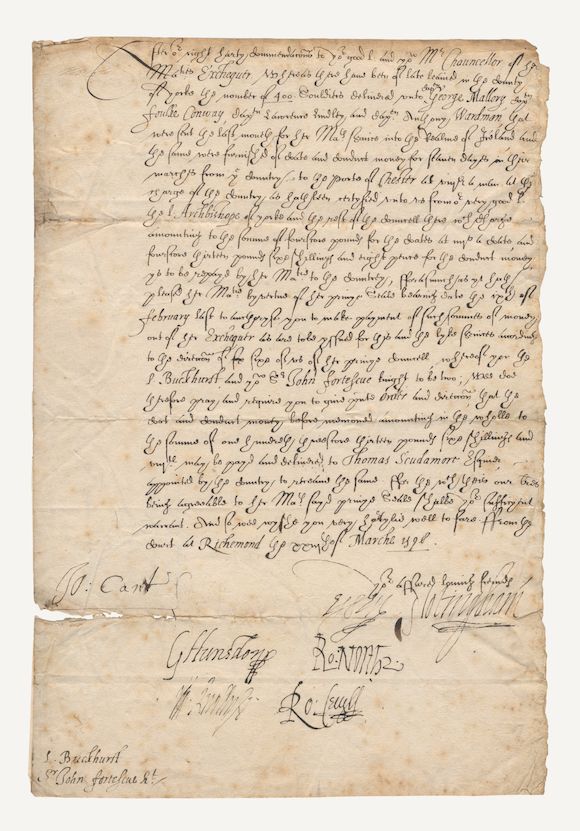 After or right harty commendacons to yor good l. and yow Mr Chauncellor of the
Maties Exchequer. Whereas there have ben of late leavied in the county
of yorke the nomber of 400 Souldiers delivered unto George Mallory
Foulke Conway, Lawrence and Anthony Wardman, that
were sent the last month for her Mats service into the Realme of Ireland and
the same were furnished of coates and conduct money for seaven dayes in their
marche from yt country, to the porte of Chester at a man at the
charge of the country, as hath ben certefyed unto us from or very good l.
the l. Archbishope of yorke and the rest of the councell there wch charge
amounting to the somme of fourscore pounds for the coates at a coate, and
fourscore thirteen pounds six shillings and eight pence for the conduct money
ys to be repayd by her Matie to the country, fforasmuch as yt hath
pleased her Matie by vertue of her privye Seale bearing date the of
february last to aucthoryse you to make payment of such sommes of money
out of her Exchequer as are to be yssued for this and the lyke services according
to the direction of six of us of her privye councell whereof yow the
l. Buckhurst and yow Sr John fortescue knight to be two; Wee doe
therefore pray and require you to give order and direction that the
coat and conduct money before mencioned amounting in the wholle to
the somme of one hundreth threescore thirteen pounds six shillings and
may be payd and delivered to Thomas Scudamore Esquier
appointed by the country to receave the same. ffor the wch theis our lres
being agreeable to her Mats sayd privye Seale shalbe yor sufficyent
warrant. And so wee wysh you very hartylie well to fare. ffrom the
court at Richemond the of Marche 1598
yor assured loving frends
Jo: Cant
Notingham
G Hunsdon Ro: North
Ro: Cecyll
l. Buckhurst
Sr John fortescue kt.